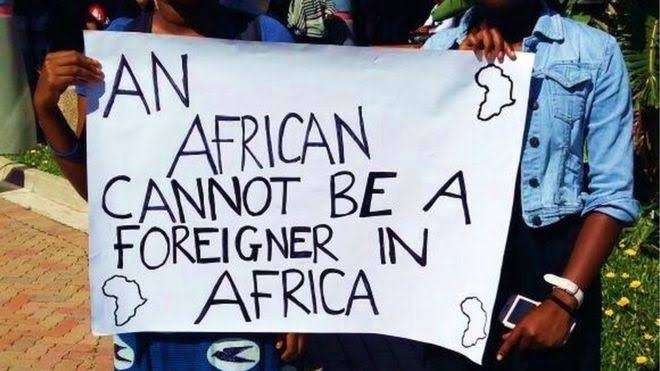 AN
AFRICAN
CANNOT BE A
FOREIGNER IN
AFRICA